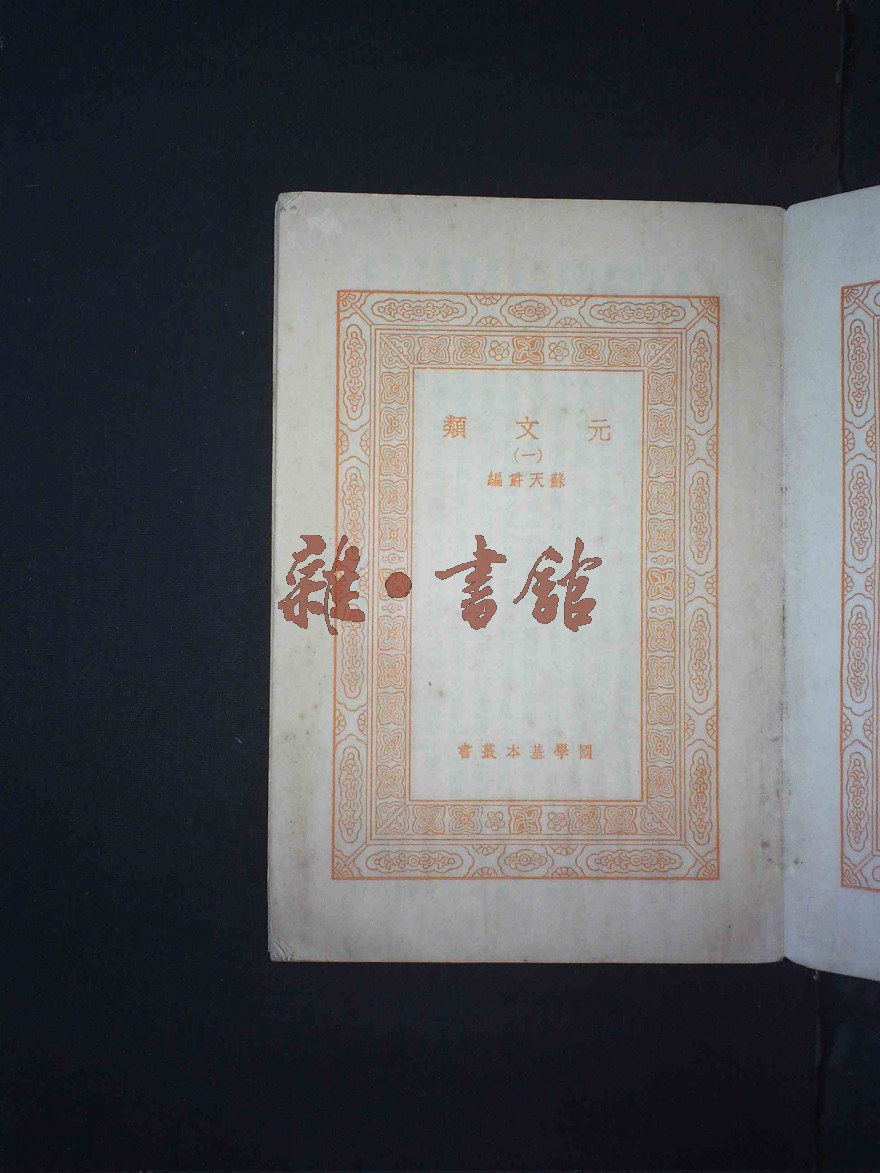 元文類
(一)
蘇天爵編
雜·書館
國學基本叢書